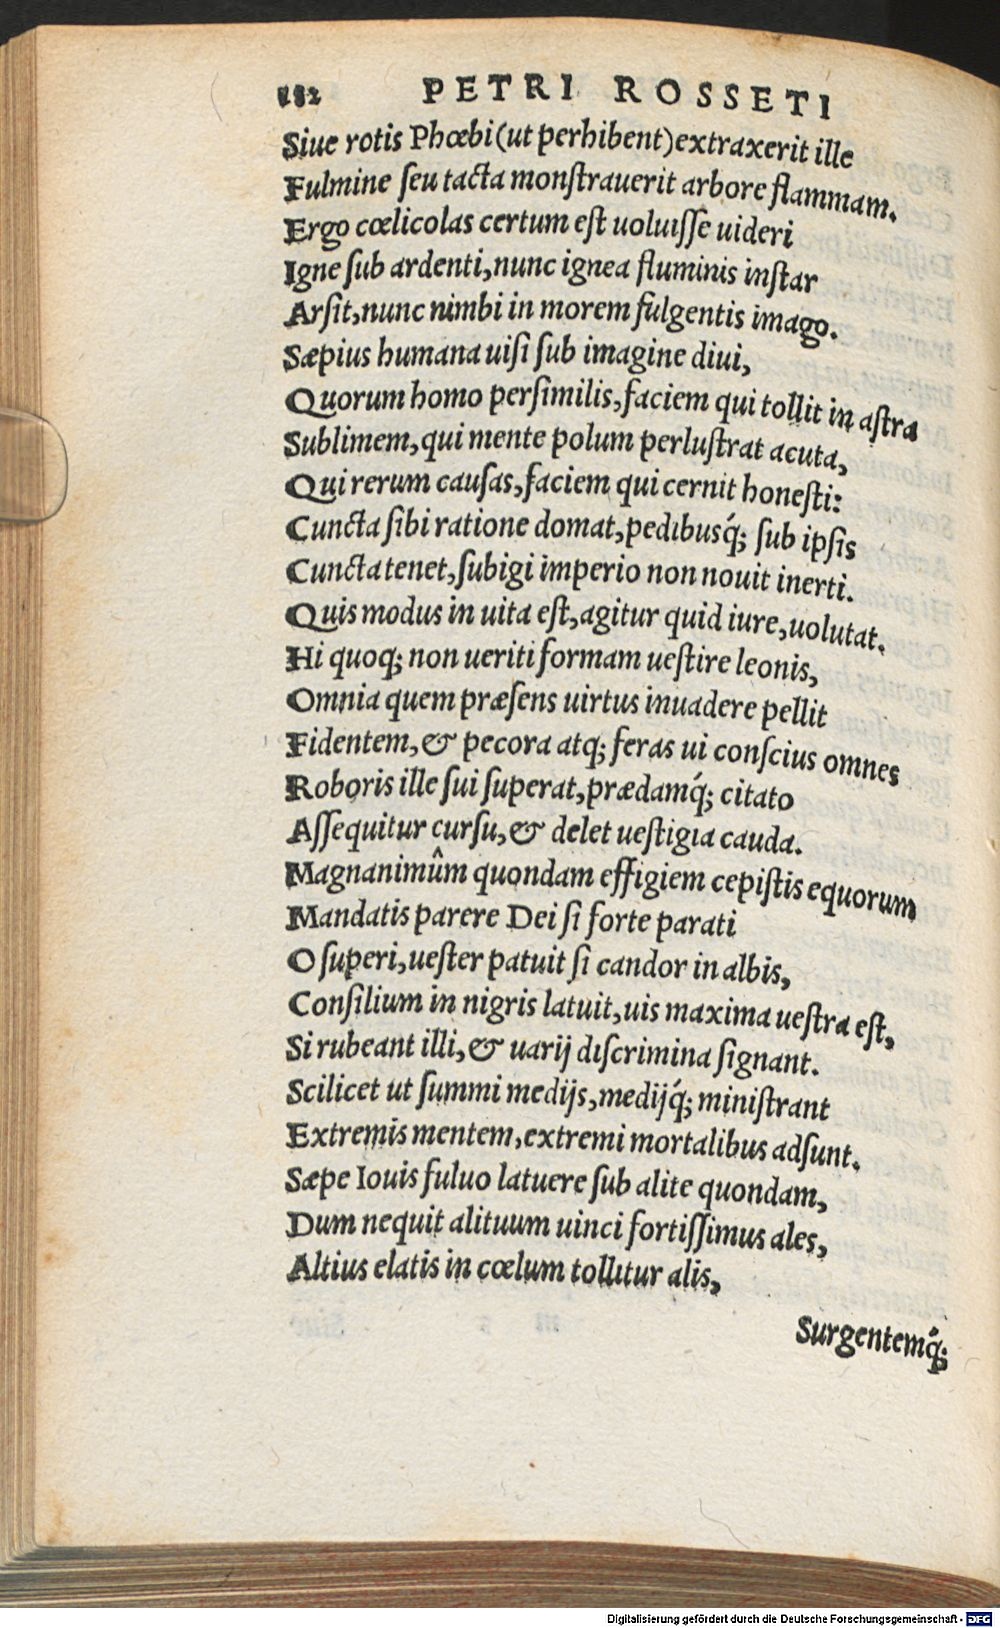 182 PETRI ROSSETI
Siue rotis Phœbi (ut perhibent) extraxerit ille
Fulmine ſeu tacta monſtrauerit arbore flammam.
Ergo cœlicolas certum eſt uoluiſſe uideri
Igne ſub ardenti, nunc ignea fluminis inſtar
Arſit, nunc nimbi in morem fulgentis imago.
Sæpius humana uiſi ſub imagine diui,
Quorum homo perſimilis, faciem qui tollit in aſtra
Sublimem, qui mente polum perluſtrat acuta,
Qui rerum cauſas, faciem qui cernit honeſti:
Cuncta ſibi ratione domat, pedibusq́; ſub ipſis
Cuncta tenet, ſubigi imperio non nouit inerti.
Quis modus in uita eſt, agitur quid iure, uolutat.
Hi quoq; non ueriti formam ueſtire leonis,
Omnia quem præſens uirtus inuadere pellit
Fidentem, & pecora atq; feras ui conſcius omnes
Roboris ille ſui ſuperat, prædamq́; citato
Aſſequitur curſu, & delet ueſtigia cauda.
Magnanimûm quondam effigiem cepiſtis equorum
Mandatis parere Dei ſi forte parati
O ſuperi, ueſter patuit ſi candor in albis,
Conſilium in nigris latuit, uis maxima ueſtra eſt,
Si rubeant illi, & uarij diſcrimina ſignant.
Scilicet ut ſummi medijs, medijq́; miniſtrant
Extremis mentem, extremi mortalibus adſunt.
Sæpe Iouis fuluo latuere ſub alite quondam,
Dum nequit alituum uinci fortiſſimus ales,
Altius elatis in cœlum tollitur alis,
Surgentemq́;
Digitalisierung gefördert durch die Deutsche Forschungsgemeinschaft - DFG